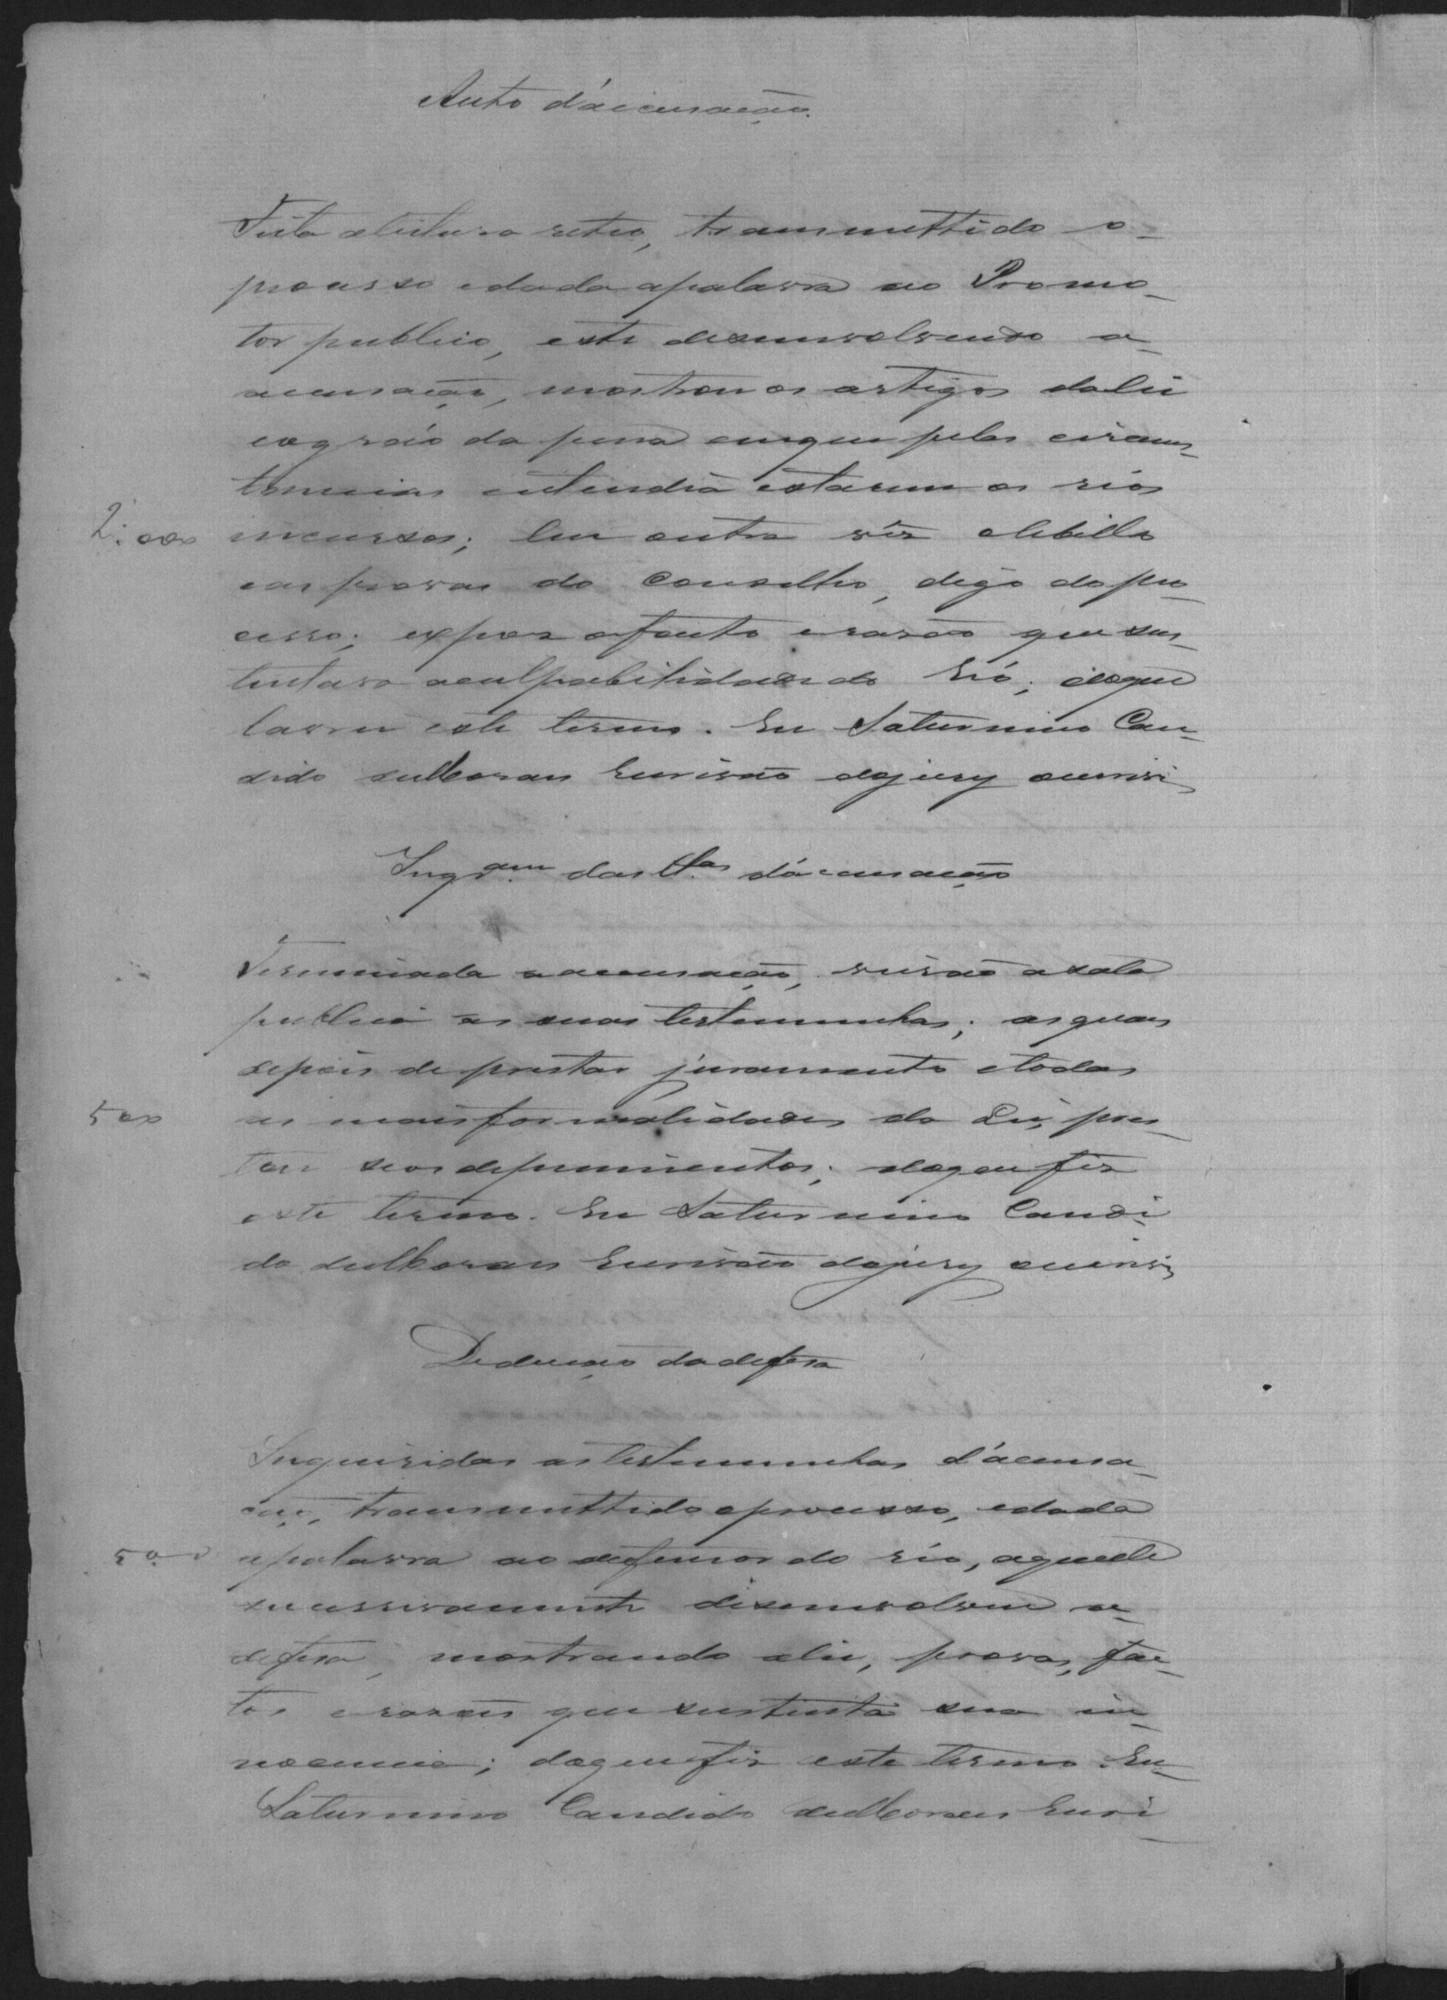 Auto d'accusação.
Feita aleitura retro, transmettido o
processo edada apalavra ao Promo-
tor publico, este desenvolvendo a
accusação, mostrou os artigos da lei
eográo da pena emque pelas circuns-
tancias entendia estarem os réos
2:000 incursos; leu outra vêz olibello
eas provas do Conselho, digo do pro-
cesso; expoz ofacto erasão que sus-
tentava aculpabilidade do Réo; doque
lavrei este termo. Eu Saturnino Can-
dido de Moraes Escrivão dojury escrivi
Inqr.am das tt.as d'accusação
Terminada a accusação, vierão asala
publica as suas testemunhas; asquaes
depois deprestar juramento etodas
500 as mais formalidades da Lei, pres-
tou seos depoimentos; doque fiz
este termo. Eu Saturnino Candi-
do de Moraes Escrivão dojury escrivi
Deducção dadefesa
Inqueridas as testemunhas d'accusa-
ção, transmettido oprocesso, edada
500 apalavra ao defensor do réo, aquelle
successivamente desenvolveu a
defesa, mostrando alei, provas, fac-
tos erasões que sustenta sua in-
nocencia; doque fiz este termo. Eu
Saturnino Candido de Moraes Escri-